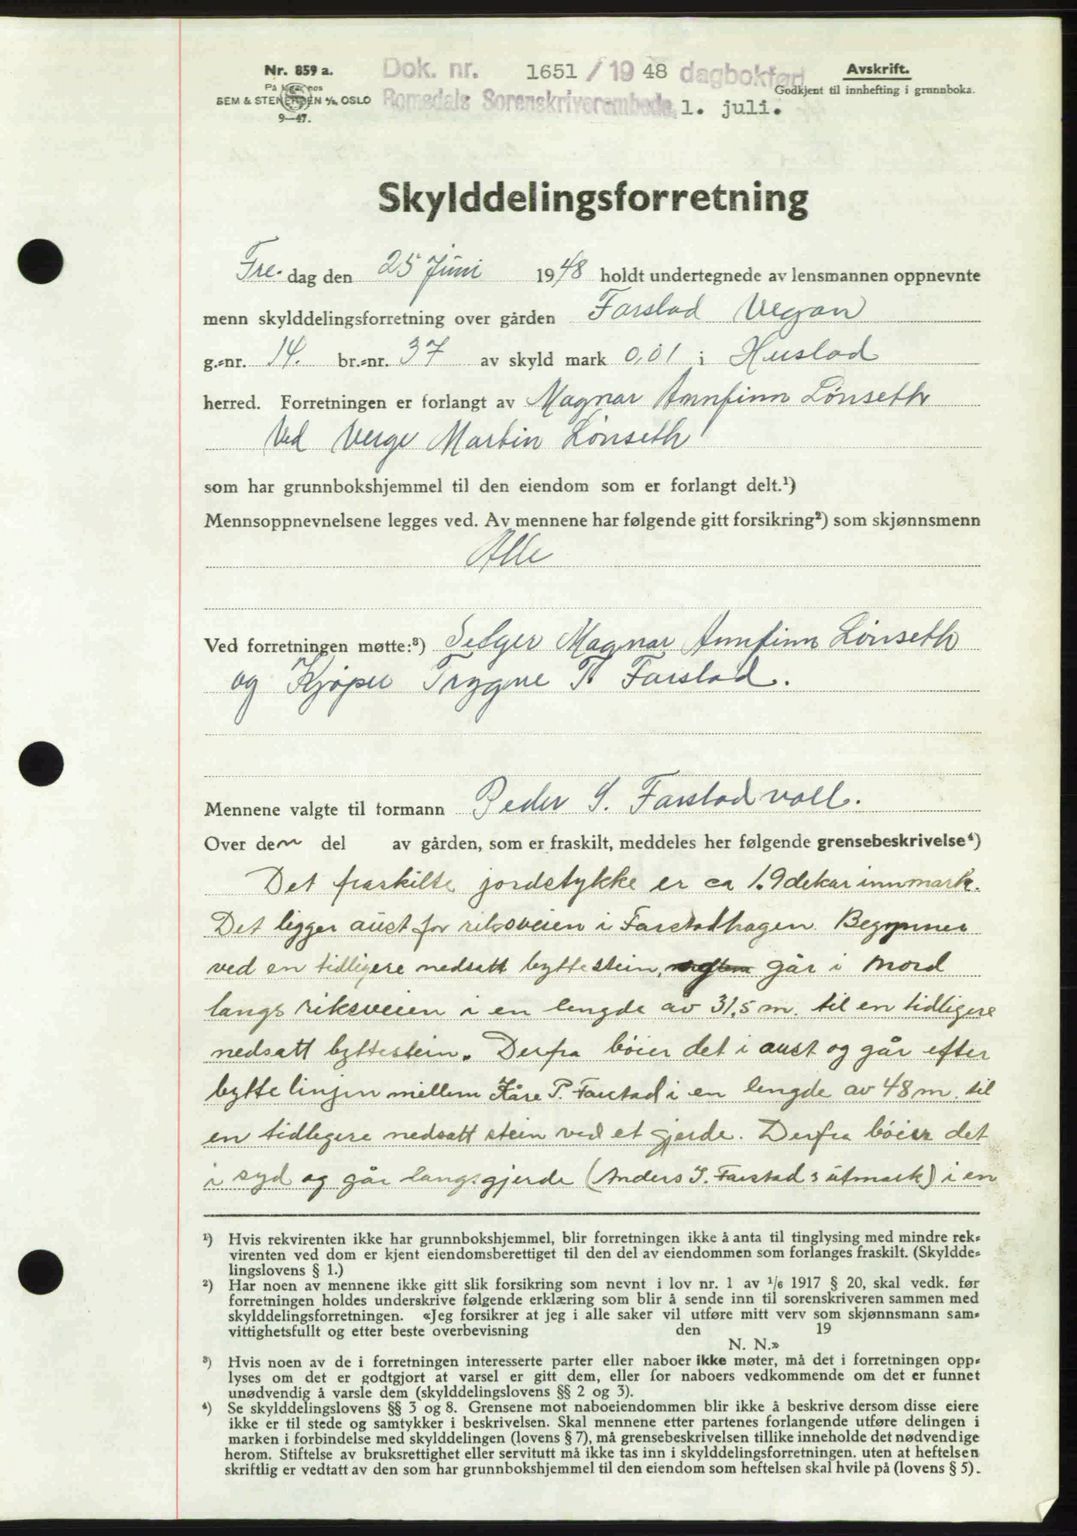 Nr. 859 a.
Dok. nr. 1651 / 19 48 dagbokført
Avskrift.
SEM & STENERSEN A/S OSLO
Godkjent til innhefting i grunnboka.
Romsdals Sorenskriverembede, 1. juli.
9—47.
Skylddelingsforretning
Fre- dag den 25 Juni 19 48 holdt undertegnede av lensmannen oppnevnte
menn skylddelingsforretning over gården Farstad Vegan
g.-nr. 14. br.-nr. 37 av skyld mark 0,01 i Hustad
herred. Forretningen er forlangt av Magnar Annfinn Lønseth
Ved Verge Martin Lønseth
som har grunnbokshjemmel til den eiendom som er forlangt delt.¹)
Mennsoppnevnelsene legges ved. Av mennene har følgende gitt forsikring²) som skjønnsmenn
Alle
Ved forretningen møtte:³) Selger Magnar Annfinn Lønseth
og Kjøper Trygve T. Farstad.
Mennene valgte til formann Peder S. Farstadvoll.
Over den del av gården, som er fraskilt, meddeles her følgende grensebeskrivelse⁴)
Det fraskilte jordstykke er ca 1.9 dekar innmark.
Det ligger aust for riksveien i Farstadhagen. Begynner
ved en tidligere nedsatt byttestein, går i nord
langs riksveien i en lengde av 31,5 m. til en tidligere
nedsatt byttestein. Derfra bøier det i aust og går efter
bytte linjen mellem Kåre P. Farstad i en lengde av 48 m. til
en tidligere nedsatt stein ved et gjerde. Derfra bøier det
i syd og går langs gjerde (Anders J. Farstad s utmark) i en
¹) Hvis rekvirenten ikke har grunnbokshjemmel, blir forretningen ikke å anta til tinglysing med mindre rek-
virenten ved dom er kjent eiendomsberettiget til den del av eiendommen som forlanges fraskilt. (Skyldde-
lingslovens § 1.)
²) Har noen av mennene ikke gitt slik forsikring som nevnt i lov nr. 1 av ¹/₆ 1917 § 20, skal vedk. før
forretningen holdes underskrive følgende erklæring som blir å sende inn til sorenskriveren sammen med
skylddelingsforretningen. «Jeg forsikrer at jeg i alle saker vil utføre mitt verv som skjønnsmann sam-
vittighetsfullt og etter beste overbevisning den 19
N. N.»
³) Hvis noen av de i forretningen interesserte parter eller naboer ikke møter, må det i forretningen opp-
lyses om det er godtgjort at varsel er gitt dem, eller for naboers vedkommende om det er funnet
unødvendig å varsle dem (skylddelingslovens §§ 2 og 3).
⁴) Se skylddelingslovens §§ 3 og 8. Grensene mot naboeiendommen blir ikke å beskrive dersom disse eiere
ikke er til stede og samtykker i beskrivelsen. Skal mennene etter partenes forlangende utføre delingen i
marken i forbindelse med skylddelingen (lovens § 7), må grensebeskrivelsen tillike inneholde det nødvendige
herom. Stiftelse av bruksrettighet eller servitutt må ikke tas inn i skylddelingsforretningen. uten at heftelsen
skriftlig er vedtatt av den som har grunnbokshjemmel til den eiendom som heftelsen skal hvile på (lovens § 5).